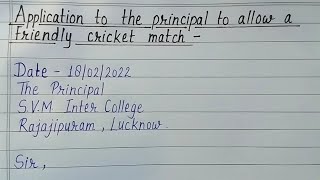 Application to the principal to allow a
friendly cricket match -
Date - 18/02/2022
The Principal
S.V.M Inter College
Rajajipuram, Lucknow.
Sir,